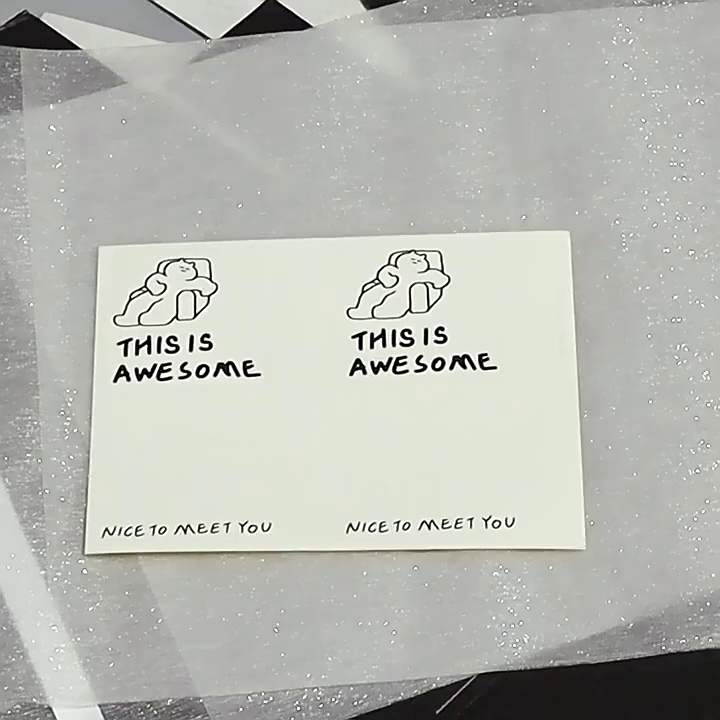 THIS IS
AWESOME
NICE TO MEET YOU
THIS IS
AWESOME
NICE TO MEET YOU